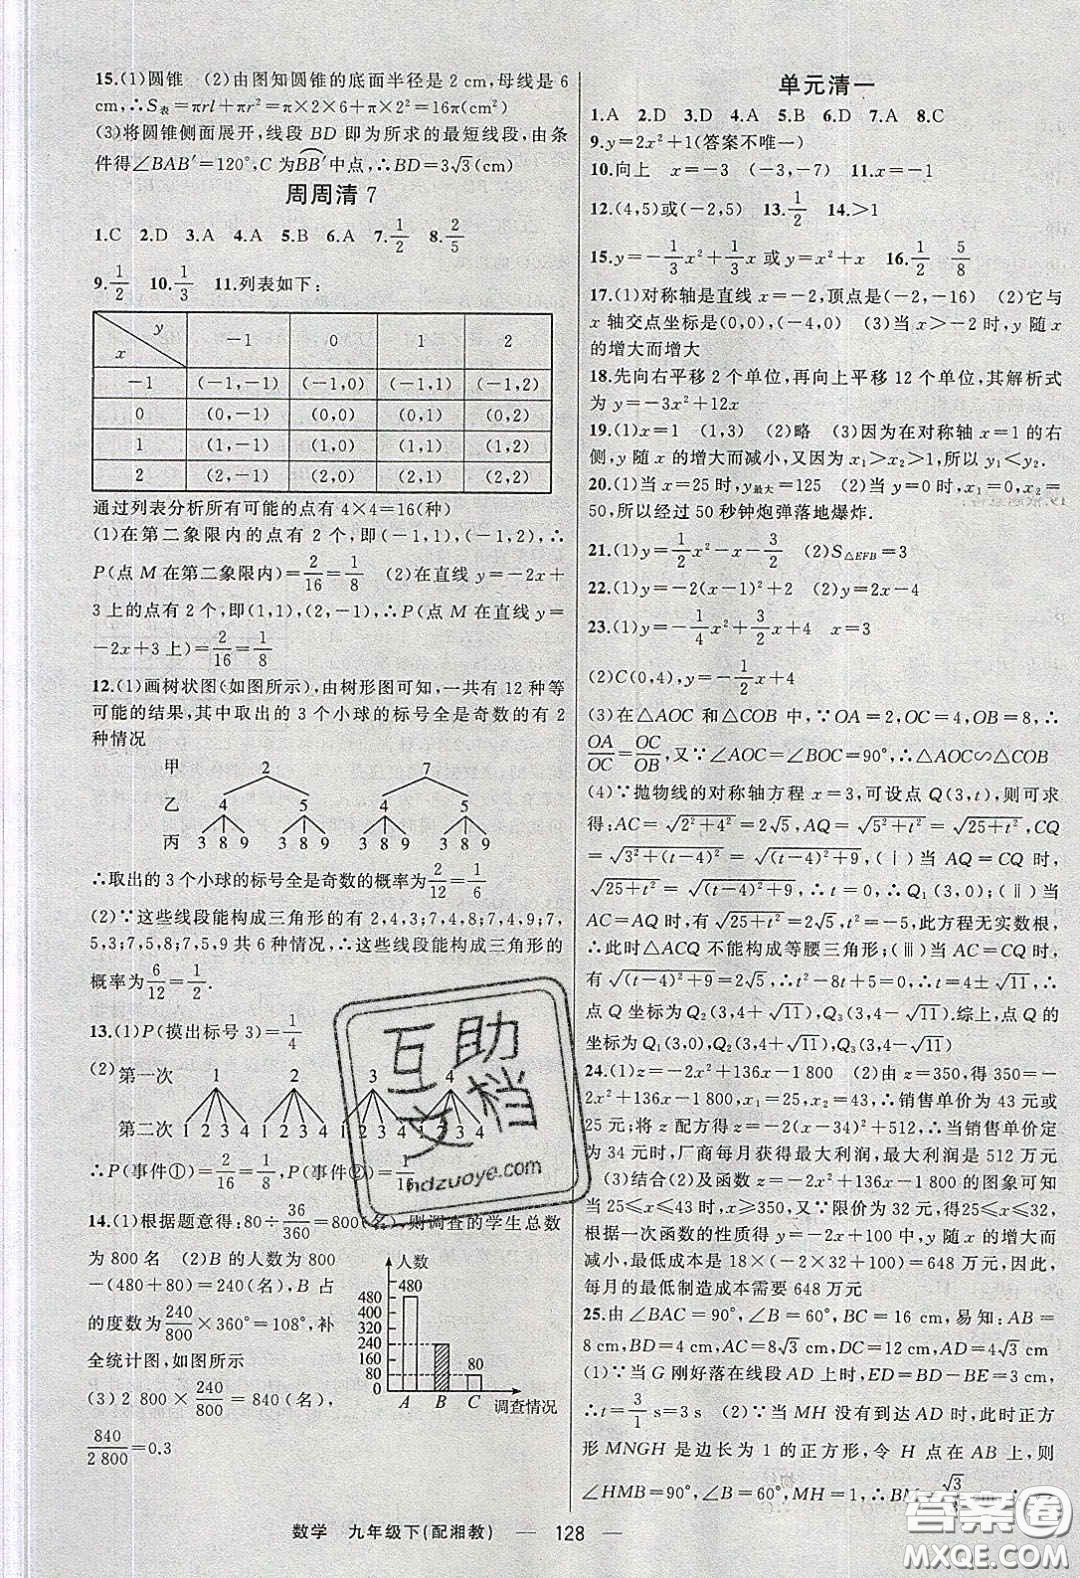 15.(1)圆锥 (2)由图知圆锥的底面半径是 2 cm,母线是 6
cm,∴S表=πrl+πr²=π×2×6+π×2²=16π(cm²)
(3)将圆锥侧面展开,线段 BD 即为所求的最短线段,由条
件得∠BAB′=120°,C 为BB′中点,∴BD=3√3(cm)
周周清 7
1.C 2.D 3.A 4.A 5.B 6.A 7.1/2 8.2/5
9.1/2 10.1/3 11.列表如下:
y x -1 0 1 2
-1 (-1,-1) (-1,0) (-1,1) (-1,2)
0 (0,-1) (0,0) (0,1) (0,2)
1 (1,-1) (1,0) (1,1) (1,2)
2 (2,-1) (2,0) (2,1) (2,2)
通过列表分析所有可能的点有 4×4=16(种)
(1)在第二象限内的点有 2 个,即(-1,1),(-1,2),∴
P(点 M 在第二象限内)=2/16=1/8 (2)在直线 y=-2x+
3 上的点有 2 个,即(1,1),(2,-1),∴P(点 M 在直线 y=
-2x+3 上)=2/16=1/8
12.(1)画树状图(如图所示),由树形图可知,一共有 12 种等
可能的结果,其中取出的 3 个小球的标号全是奇数的有 2
种情况
甲 2 7
乙 4 5 4 5
丙 3 8 9 3 8 9 3 8 9 3 8 9
∴取出的 3 个小球的标号全是奇数的概率为2/12=1/6
(2)∵这些线段能构成三角形的有 2,4,3;7,4,8;7,4,9;7,
5,3;7,5,8;7,5,9 共 6 种情况,∴这些线段能构成三角形的
概率为6/12=1/2.
13.(1)P(摸出标号 3)=1/4
(2) 第一次 1 2 3 4
第二次 1 2 3 4 1 2 3 4 1 2 3 4 1 2 3 4
∴P(事件①)=2/16=1/8,P(事件②)=1/16
14.(1)根据题意得:80÷36/360=800(名),则调查的学生总数
为 800 名 (2)B 的人数为 800
-(480+80)=240(名),B 占
的度数为240/800×360°=108°,补
全统计图,如图所示
(3)2 800×240/800=840(名),
840/2 800=0.3
人数
480
480
400
320
240
160
80
80
0
A B C 调查情况
单元清一
1.A 2.D 3.D 4.A 5.B 6.D 7.A 8.C
9.y=2x²+1(答案不唯一)
10.向上 x=-3 (-3,-7) 11.x=-1
12.(4,5)或(-2,5) 13.1/2 14.>1
15.y=-1/3x²+1/3x 或 y=x²+x 16.1/2 5/8
17.(1)对称轴是直线 x=-2,顶点是(-2,-16) (2)它与
x 轴交点坐标是(0,0),(-4,0) (3)当 x>-2 时,y 随 x
的增大而增大
18.先向右平移 2 个单位,再向上平移 12 个单位,其解析式
为 y=-3x²+12x
19.(1)x=1 (1,3) (2)略 (3)因为在对称轴 x=1 的右
侧,y 随 x 的增大而减小,又因为 x₁>x₂>1,所以 y₁<y₂.
20.(1)当 x=25 时,y最大=125 (2)当 y=0 时,x₁=0,x₂=
50,所以经过 50 秒钟炮弹落地爆炸.
21.(1)y=1/2x²-x-3/2 (2)S△EFB=3
22.(1)y=-2(x-1)²=-2x²+4x-2 (2)y=2x-4
23.(1)y=-1/4x²+3/2x+4 x=3
(2)C(0,4),y=-1/2x+4
(3)在△AOC 和△COB 中,∵OA=2,OC=4,OB=8,∴
OA/OC=OC/OB,又∵∠AOC=∠BOC=90°,∴△AOC∽△COB
(4)∵抛物线的对称轴方程 x=3,可设点 Q(3,t),则可求
得:AC=√(2²+4²)=2√5,AQ=√(5²+t²)=√(25+t²),CQ
=√(3²+(t-4)²)=√((t-4)²+9),(ⅰ)当 AQ=CQ 时,
√(25+t²)=√((t-4)²+9),∴t=0,∴Q₁(3,0);(ⅱ)当
AC=AQ 时,有√(25+t²)=2√5,t²=-5,此方程无实数根,
∴此时△ACQ 不能构成等腰三角形;(ⅲ)当 AC=CQ 时,
有√((t-4)²+9)=2√5,∴t²-8t+5=0,∴t=4±√11,∴
点 Q 坐标为 Q₂(3,4+√11),Q₃(3,4-√11).综上,点 Q 的
坐标为 Q₁(3,0),Q₂(3,4+√11),Q₃(3,4-√11)
24.(1)z=-2x²+136x-1 800 (2)由 z=350,得 350=-
2x²+136x-1 800,x₁=25,x₂=43,∴销售单价为 43 元或
25 元;将 z 配方得 z=-2(x-34)²+512,∴当销售单价定
为 34 元时,厂商每月获得最大利润,最大利润是 512 万元
(3)结合(2)及函数 z=-2x²+136x-1 800 的图象可知
当 25≤x≤43 时,z≥350,又∵限价为 32 元,得25≤x≤32,
根据一次函数的性质得 y=-2x+100 中,y 随 x 的增大而
减小,最低成本是 18×(-2×32+100)=648 万元,因此,
每月的最低制造成本需要 648 万元
25.由∠BAC=90°,∠B=60°,BC=16 cm,易知:AB=
8 cm,BD=4 cm,AC=8√3 cm,DC=12 cm,AD=4√3 cm
(1)∵当 G 刚好落在线段 AD 上时,ED=BD-BE=3,
∴t=3/1 s=3 s (2)∵当 MH 没有到达 AD 时,此时正方
形 MNGH 是边长为 1 的正方形,令 H 点在 AB 上,则
∠HMB=90°,∠B=60°,MH=1,∴BM=√3/3
数学 九年级下(配湘教) — 128 —
互助文档
hdzuoye.com
答案圈
MXQE.COM